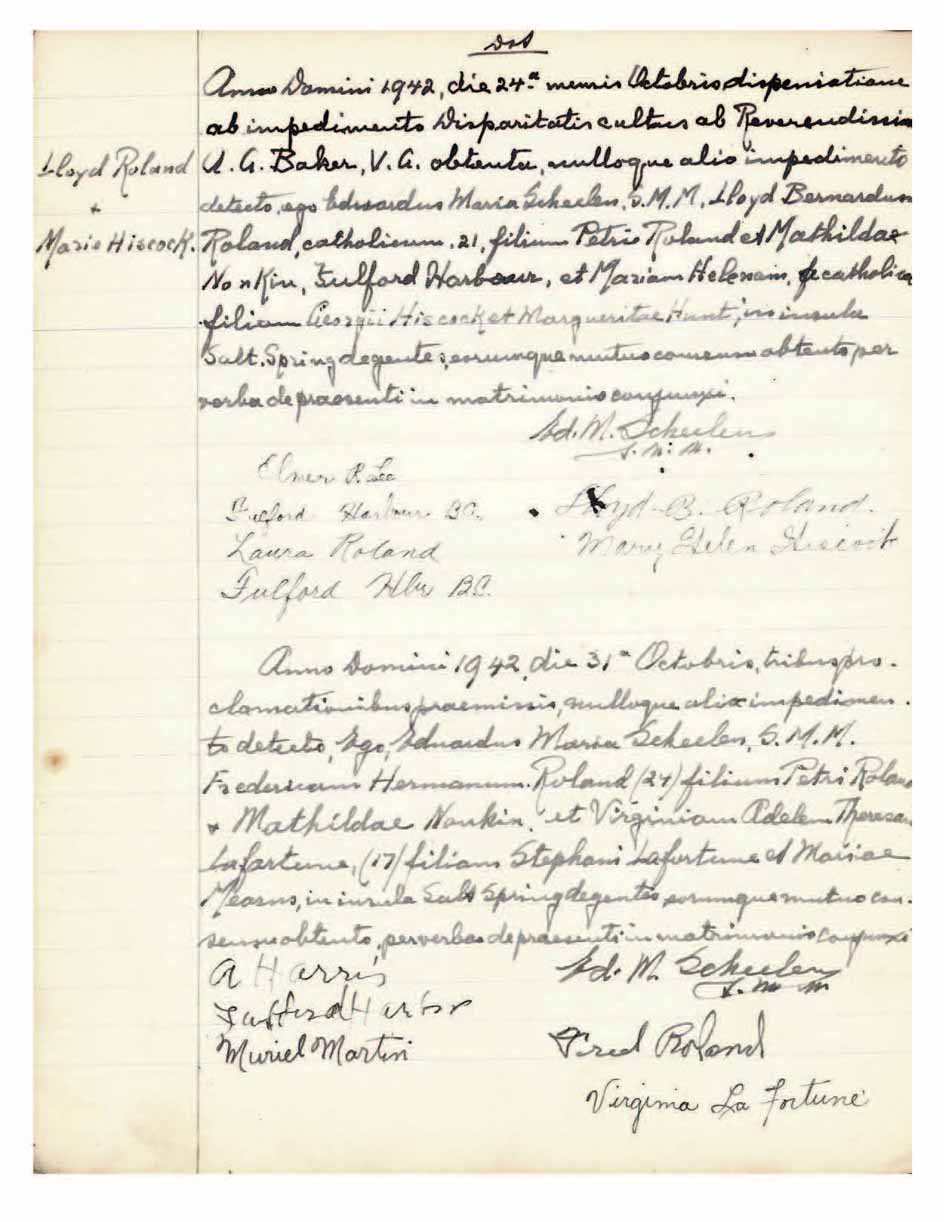 Anno Domini 1942, die 24a mensis Octobris dispensatione
ab impedimento Disparitatis cultus ab Reverendissim
A. G. Baker, V. G. obtenta, nulloque alio impedimento
Lloyd Roland
+
Marie Hiscock.
detecto, ego Edwardus Maria Scheelen, S.M.M. Lloyd Bernardum
Roland, catholicum, 21, filium Petri Roland et Mathildae
Nonkin, Fulford Harbour, et Mariam Helenam, catholica
filiam Georgii Hiscock et Margueritae Hunt, in insula
Salt Spring degentes, eorumque mutuo consensu obtento per
verba de praesenti in matrimonio conjunxi.
Ed. M. Scheelen
S.M.M.
Elmer R. Lee
Fulford Harbour B.C.
Laura Roland
Fulford Hbr B.C.
Lloyd B. Roland.
Mary Helen Hiscock
Anno Domini 1942, die 31a Octobris, tribus pro-
clamationibus praemissis, nulloque alio impedimen-
to detecto, Ego, Eduardus Maria Scheelen, S.M.M.
Fredericum Hermanum Roland (24) filium Petri Roland
+ Mathildae Nonkin, et Virginiam Adelem Theresam
Lafortune, (17) filiam Stephani Lafortune et Mariae
Mearns, in insula Salt Spring degentes, eorumque mutuo con-
sensu obtento, per verba de praesenti in matrimonio conjunxi
A Harris
Fulford Harbor
Muriel Martin
Ed. M. Scheelen
S. M M
Fred Roland
Virginia La Fortune